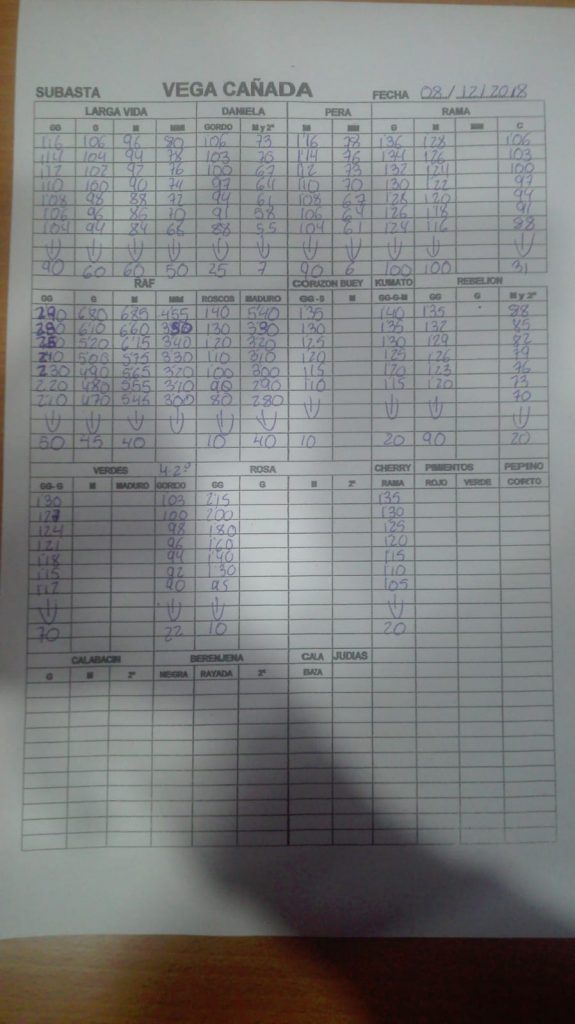 SUBASTA VEGA CAÑADA FECHA 08/12/2018
LARGA VIDA DANIELA PERA RAMA
GG G M MM GORDO M y 2ª M MM G M MM C
116 106 96 80 106 73 116 78 136 128 106
114 104 94 78 103 70 114 76 134 126 103
112 102 92 76 100 67 112 73 132 124 100
110 100 90 74 97 64 110 70 130 122 97
108 98 88 72 94 61 108 67 128 120 94
106 96 86 70 91 58 106 64 126 118 91
104 94 84 68 88 55 104 61 124 116 88
90 60 60 50 25 7 90 6 100 100 31
RAF CORAZON BUEY KUMATO REBELION
GG G M MM ROSCOS MADURO GG - G M GG-G-M GG G M y 2ª
680 685 455 140 540 135 140 135 88
610 660 350 130 390 130 135 132 85
520 615 340 120 320 125 130 129 82
500 575 330 110 310 120 125 126 79
230 490 565 320 100 300 115 120 123 76
220 480 555 310 90 290 110 115 120 73
210 470 545 300 80 280 70
50 45 40 10 40 10 20 90 20
VERDES 4.2ª ROSA CHERRY PIMIENTOS PEPINO
GG- G M MADURO GORDO GG G M 2ª RAMA ROJO VERDE CORTO
130 103 215 135
127 100 200 130
124 98 180 125
121 96 160 120
118 94 140 115
115 92 130 110
112 90 95 105
70 22 10 20
CALABACIN BERENJENA CALA JUDIAS
G M 2ª NEGRA RAYADA 2ª BAZA